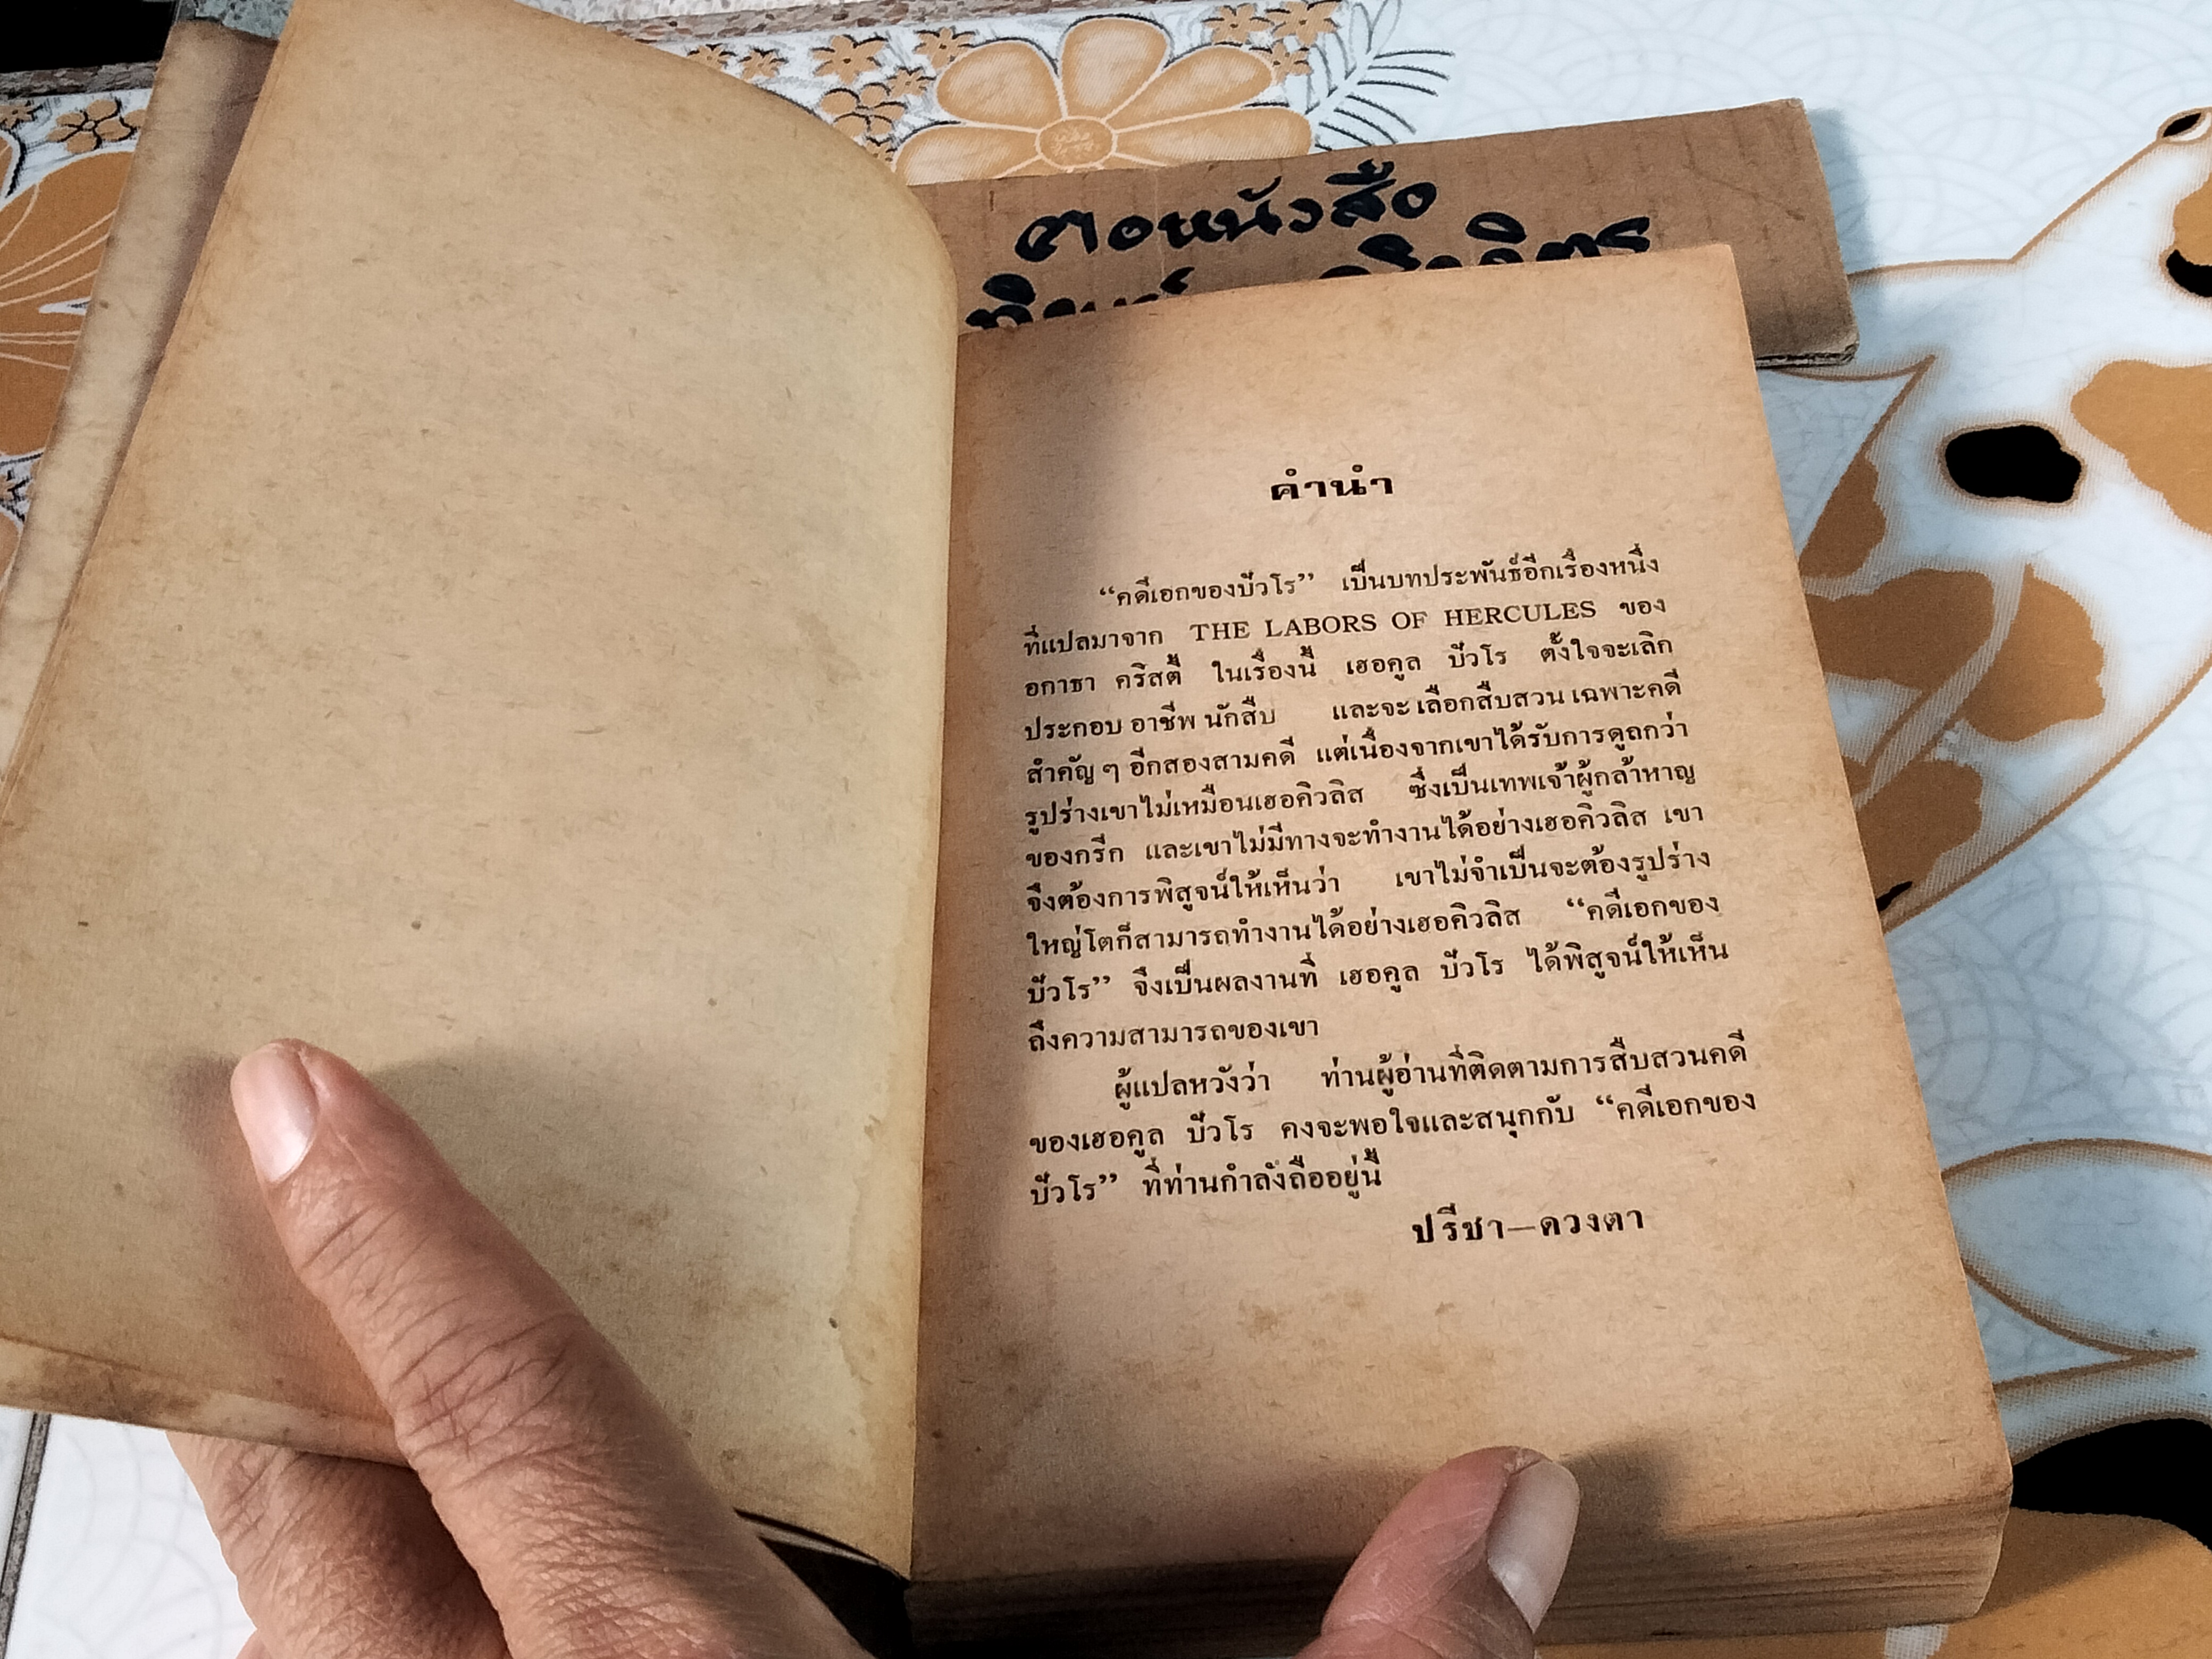 คอหนังสือ
คำนำ
“คดีเอกของปัวโร” เป็นบทประพันธ์อีกเรื่องหนึ่ง
ที่แปลมาจาก THE LABORS OF HERCULES ของ
อกาธา คริสตี้ ในเรื่องนี้ เฮอคูล ปัวโร ตั้งใจจะเลิก
ประกอบ อาชีพ นักสืบ และจะ เลือกสืบสวน เฉพาะคดี
สำคัญ ๆ อีกสองสามคดี แต่เนื่องจากเขาได้รับการดูถูกว่า
รูปร่างเขาไม่เหมือนเฮอคิวลิส ซึ่งเป็นเทพเจ้าผู้กล้าหาญ
ของกรีก และเขาไม่มีทางจะทำงานได้อย่างเฮอคิวลิส เขา
จึงต้องการพิสูจน์ให้เห็นว่า เขาไม่จำเป็นจะต้องรูปร่าง
ใหญ่โตก็สามารถทำงานได้อย่างเฮอคิวลิส “คดีเอกของ
ปัวโร” จึงเป็นผลงานที่ เฮอคูล ปัวโร ได้พิสูจน์ให้เห็น
ถึงความสามารถของเขา
ผู้แปลหวังว่า ท่านผู้อ่านที่ติดตามการสืบสวนคดี
ของเฮอคูล ปัวโร คงจะพอใจและสนุกกับ “คดีเอกของ
ปัวโร” ที่ท่านกำลังถืออยู่นี้
ปรีชา—ดวงตา